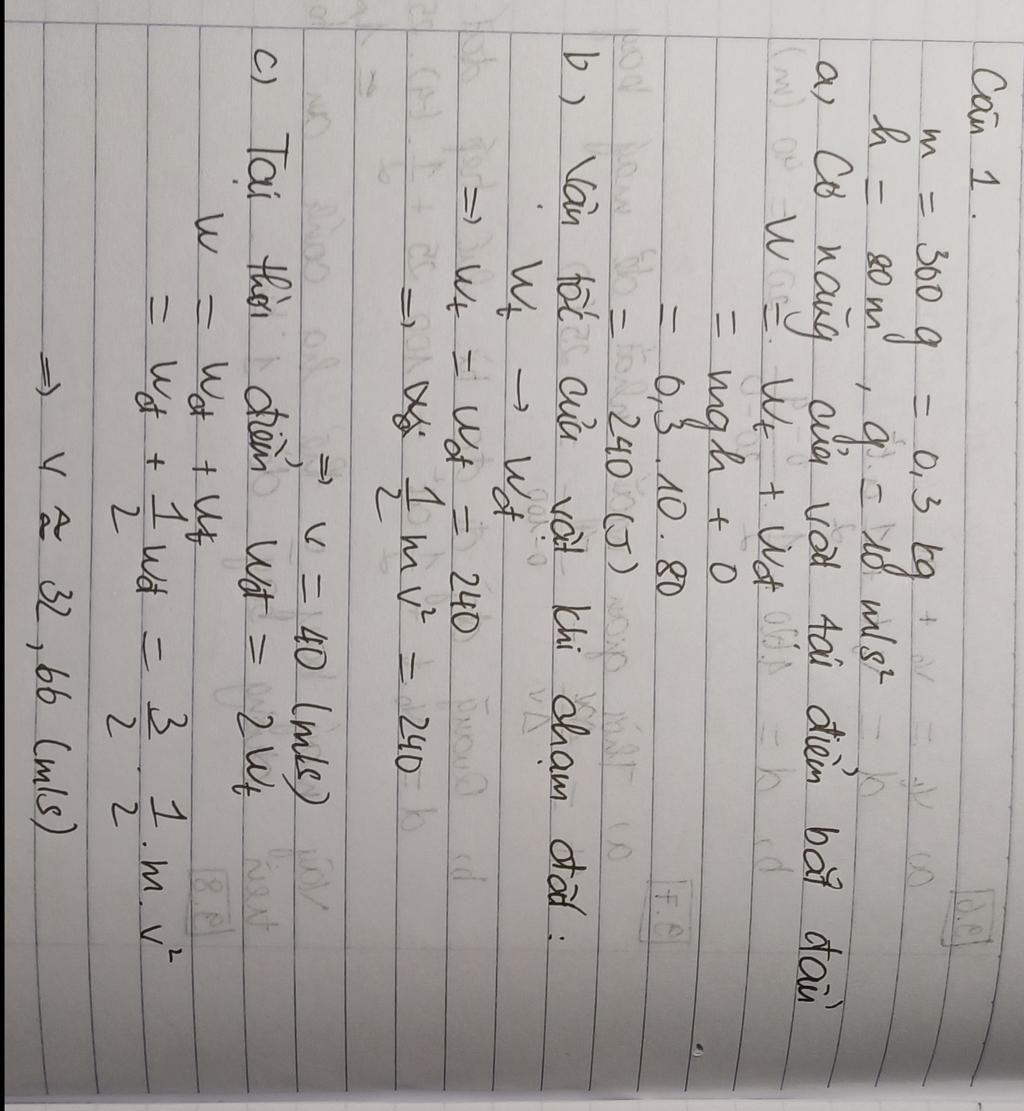 Câu 1.
m = 300 g = 0,3 kg
h = 80 m, g = 10 m/s²
a) Cơ năng của vật tại điểm bắt đầu
W = Wt + Wđ
= mgh + 0
= 0,3 . 10 . 80
= 240 (J)
b) Vận tốc của vật khi chạm đất :
Wt → Wđ
=> Wt = Wđ = 240
=> 1/2 m v² = 240
=> v = 40 (m/s)
c) Tại thời điểm Wđ = 2Wt
W = Wđ + Wt
= Wđ + 1/2 Wđ = 3/2 . 1/2 . m . v²
=> v ≈ 32,66 (m/s)